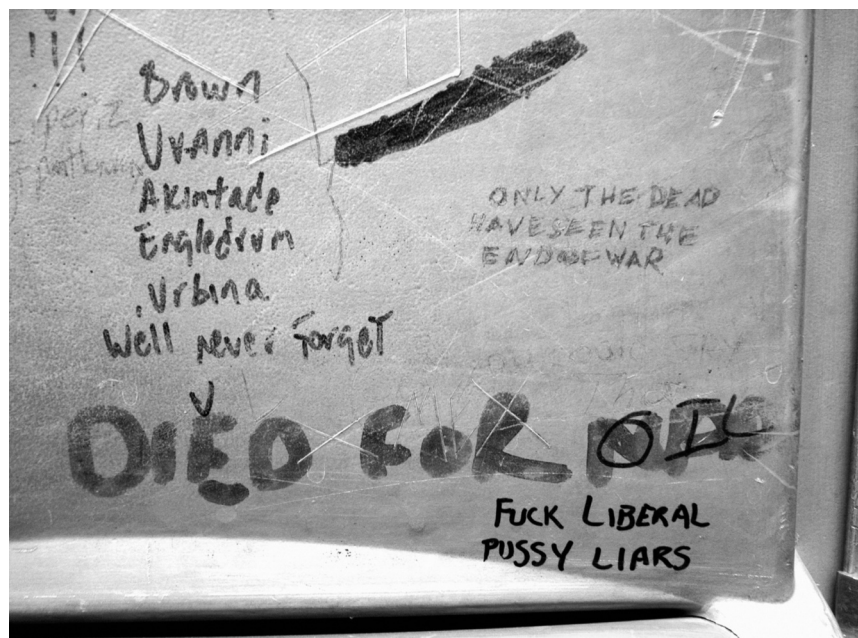 !!!
Brown
Uvanni
Akintade
Engledrum
Urbina
We'll never forget
ONLY THE DEAD
HAVE SEEN THE
END OF WAR
DIED FOR
OIL
FUCK LIBERAL
PUSSY LIARS